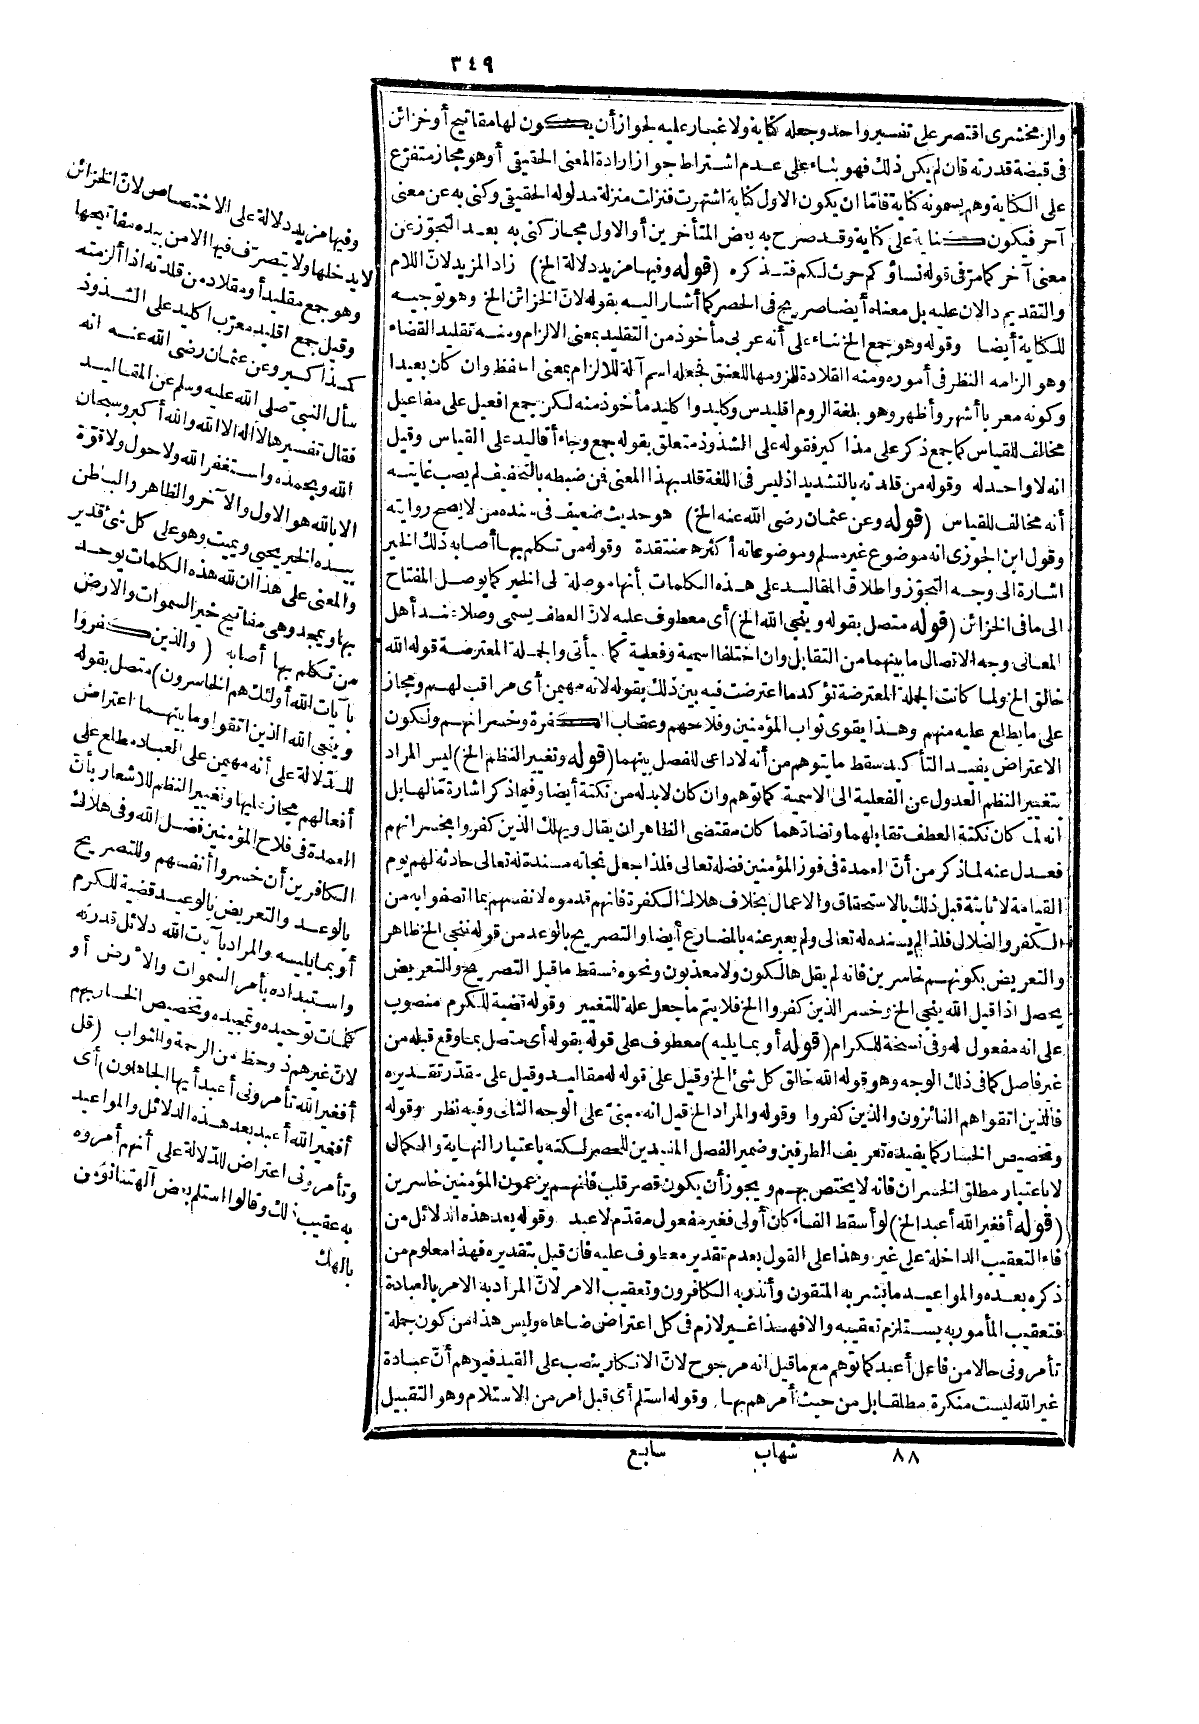 ٣٤٩
والزمخشرى اقتصر على تفسير واحد وجعله كناية ولا غبار عليه لجواز أن يكون لها مفاتيح أو خزائن
فى قبضة قدرته فان لم يكن ذلك فهو بناء على عدم اشتراط جواز ارادة المعنى الحقيقى أو هو مجاز متفرّع
على الكناية وهم يسمونه كناية فامّا ان يكون الاول كناية اشتهرت فنزلت منزلة مدلوله الحقيقى وكنى به عن معنى
آخر فيكون كناية على كناية وقد صرح به بعض المتأخرين أو الاول مجاز كنى به بعد التجوّز عن
معنى آخر كما مرّ فى قوله نساؤكم حرث لكم فتذكره (قوله وفيها مزيد دلالة الخ) زاد المزيد لانّ اللام
والتقديم دالان عليه بل معناه أيضا صريح فى الحصر كما أشار اليه بقوله لانّ الخزائن الخ وهو توجيه
للكناية أيضا وقوله وهو جمع الخ بناء على أنه عربى مأخوذ من التقليد بمعنى الالزام ومنه تقليد القضاء
وهو الزامه النظر فى أموره ومنه القلادة للزومها للعنق فجعله اسم آلة للالزام بمعنى الحفظ وان كان بعيدا
وكونه معربا أشهر وأظهر وهو بلغة الروم اقليدس وكليد واكليد مأخوذ منه لكن جمع افعيل على مفاعيل
مخالف للقياس كما جمع ذكر على مذاكير فقوله على الشذوذ متعلق بقوله جمع وجاء أقاليد على القياس وقيل
انه لا واحد له وقوله من قلدته بالتشديد اذ ليس فى اللغة قلد بهذا المعنى فمن ضبطه بالتخفيف لم يصب غايته
أنه مخالف للقياس (قوله وعن عثمان رضى الله عنه الخ) هو حديث ضعيف فى سنده من لا يصح روايته
وقول ابن الجوزى انه موضوع غير مسلم وموضوعاته أكثرها منتقدة وقوله من تكلم بها أصابه ذلك الخير
اشارة الى وجه التجوّز واطلاق المقاليد على هذه الكلمات أنها موصلة الى الخير كما يوصل المفتاح
الى ما فى الخزائن (قوله متصل بقوله وينجى الله الخ) أى معطوف عليه لانّ العطف يسمى وصلا عند أهل
المعانى وجه الاتصال ما بينهما من التقابل وان اختلفا اسمية وفعلية كما يأتى والجملة المعترضة قوله الله
خالق الخ ولما كانت الجملة المعترضة تؤكد ما اعترضت فيه بين ذلك بقوله لانه مهيمن أى مراقب لهم ومجاز
على ما يطلع عليه منهم وهذا يقوى ثواب المؤمنين وفلاحهم وعقاب الكفرة وخسرانهم ولكون
الاعتراض يفيد التأكيد سقط ما يتوهم من أنه لا داعى للفصل بينهما (قوله وتغيير النظم الخ) ليس المراد
بتغيير النظم العدول عن الفعلية الى الاسمية كما توهم وان كان لا بد له من نكتة أيضا وفيما ذكر اشارة مّا لها بل
انه لما كان نكتة العطف تقابلهما وتضادّهما كان مقتضى الظاهر ان يقال ويهلك الذين كفروا بخسرانهم
فعدل عنه لما ذكر من أنّ العمدة فى فوز المؤمنين فضله تعالى فلذا جعل نجاته مسندة له تعالى حادثة لهم يوم
القيامة لا ثابتة قبل ذلك بالاستحقاق والاعمال بخلاف هلاك الكفرة فانهم قدموه لانفسهم بما اتصفوا به من
الكفر والضلال فلذا لم يسنده له تعالى ولم يعبر عنه بالمضارع أيضا والتصريح بالوعد من قوله ننجى الخ ظاهر
والتعريض بكونهم خاسرين فانه لم يقل هالكون ولا معذبون ونحوه فسقط ما قيل التصريح والتعريض
يحصل اذا قيل الله ينجى الخ وخسر الذين كفروا الخ فلا يتم ما جعل علة للتغيير وقوله قضية للكرم منصوب
على انه مفعول له وفى نسخة للكرام (قوله أو بما يليه) معطوف على قوله بقوله أى متصل بما وقع قبله من
غير فاصل كما فى ذلك الوجه وهو قوله الله خالق كل شئ الخ وقيل على قوله له مقاليد وقيل على مقدّر تقديره
فالذين اتقوا هم الفائزون والذين كفروا وقوله والمراد الخ قيل انه مبنىّ على الوجه الثانى وفيه نظر وقوله
وتخصيص الخسار كما يفيده تعريف الطرفين وضمير الفصل المفيدين للحصر لكنه باعتبار النهاية والكمال
لا باعتبار مطلق الخسران فانه لا يختص بهم ويجوز أن يكون قصر قلب فانهم يزعمون المؤمنين خاسرين
(قوله أفغير الله أعبد الخ) لو أسقط الفاء كان أولى فغير مفعول مقدّم لاعبد وقوله بعد هذه الدلائل من
فاء التعقيب الداخلة على غير وهذا على القول بعدم تقدير معطوف عليه فان قيل بتقديره فهذا معلوم من
ذكره بعده والمواعيد ما بشر به المتقون وأنذر به الكافرون وتعقيب الامر لانّ المراد به الامر بالعبادة
فتعقيب المأمور به يستلزم تعقيبه والافهذا غير لازم فى كل اعتراض ضاهاه وليس هذا من كون جملة
تأمرونى حالا من فاعل أعبد كما توهم مع ما قيل انه مرجوح لانّ الانكار ينصب على القيد فيوهم أنّ عبادة
غير الله ليست منكرة مطلقا بل من حيث أمرهم بها وقوله استلم أى قبل امر من الاستلام وهو التقبيل
٨٨ شهاب سابع
وفيها مزيد دلالة على الاختصاص لانّ الخزائن
لا يدخلها ولا يتصرّف فيها الا من بيده مفاتيحها
وهو جمع مقليد أو مقلاد من قلدته اذا ألزمته
وقيل جمع اقليد معرّب اكليد على الشذوذ
كمذاكير وعن عثمان رضى الله عنه انه
سأل النبىّ صلى الله عليه وسلم عن المقاليد
فقال تفسيرها لا اله الا الله والله أكبر وسبحان
الله وبحمده واستغفر الله ولا حول ولا قوّة
الا بالله هو الاول والآخر والظاهر والباطن
بيده الخير يحيى ويميت وهو على كل شئ قدير
والمعنى على هذا ان لله هذه الكلمات يوحد
بها ويمجد وهى مفاتيح خير السموات والارض
من تكلم بها أصابه (والذين كفروا
بآيات الله أولئك هم الخاسرون) متصل بقوله
وينجى الله الذين اتقوا وما بينهما اعتراض
للدلالة على أنه مهيمن على العباد مطلع على
أفعالهم مجاز عليها وتغيير النظم للاشعار بأنّ
العمدة فى فلاح المؤمنين فضل الله وفى هلاك
الكافرين أن خسروا أنفسهم وللتصريح
بالوعد والتعريض بالوعيد قضية للكرم
أو بما يليه والمراد بآيات الله دلائل قدرته
واستبداده بأمر السموات والارض أو
كلمات توحيده وتمجيده وتخصيص الخسار بهم
لانّ غيرهم ذو حظ من الرحمة والثواب (قل
أفغير الله تأمرونى أعبد أيها الجاهلون) أى
أفغير الله أعبد بعد هذه الدلائل والمواعيد
وتأمرونى اعتراض للدلالة على أنهم أمروه
به عقيب ذلك وقالوا استلم بعض آلهتنا نؤمن
بالهك